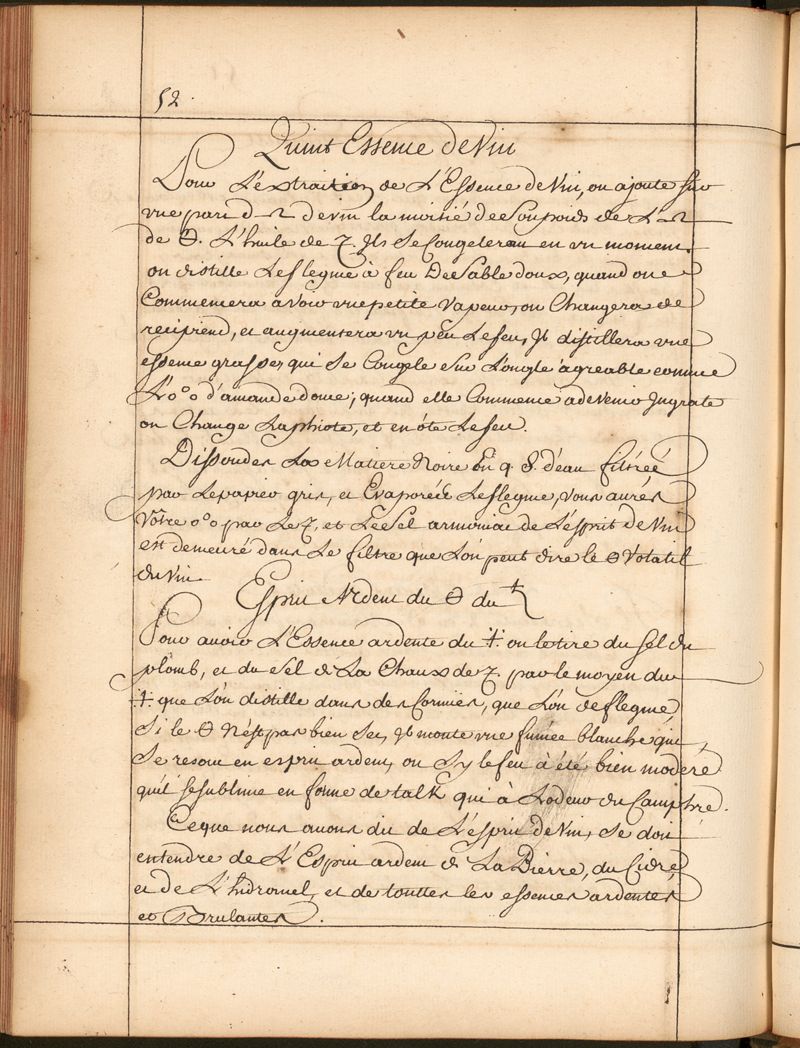 52.
Quint Essence de Vin
Pour L'extraction de L'Essence de Vin, on ajoute sur
vne part d de vin la moitié de Son poids de L'
de 🜔. L'huile de Ils se Congeleront en vn moment.
on distille Le flegme à feu De Sable doux, quand on
Commencera a Voir vne petite Vapeur, on Changera de
recipient, et augmentera vn peu Le feu, Jl distillera vne
essence grasse, qui se Congele Sur L'ongle agreable comme
L'o°o d'amande douce; quand elle Commence a devenir Jngrate
on Change La phiole, et en óte Le feu.
Dissoudes La Matiere Noire En q. S. d'eau filtrée
par Le papier gris, et Evaporée Le flegme, Vous aurés
Vôtre o°o par Le et Le Sel armoniac de L'esprit de Vin
est demeuré dans Le filtre que L'ón peut dire le 🜔 Volatil
du Vin.
Esprit Ardent du 🜔 du ♄
Pour avoir L'Essence ardente du on le tire du Sel du
plomb, et du Sel de La Chaux de par le moyen du
que L'ón distille dans des Cornües, que L'ón deflegme
Si le 🜔 N'ést pas bien Sec, Jl monte vne fumée blanche qui
Se resout en esprit ardent, ou Sy le feu à été bien moderé
qu'il se sublime en forme de talk qui à L'odeur du Camphre.
Ce que nous auons dit de L'esprit de Vin, Se doit
entendre de L'Esprit ardent de La Bierre, du Cidre,
et de L'hidromel, et de touttes les essences ardentes
et Brulantes.